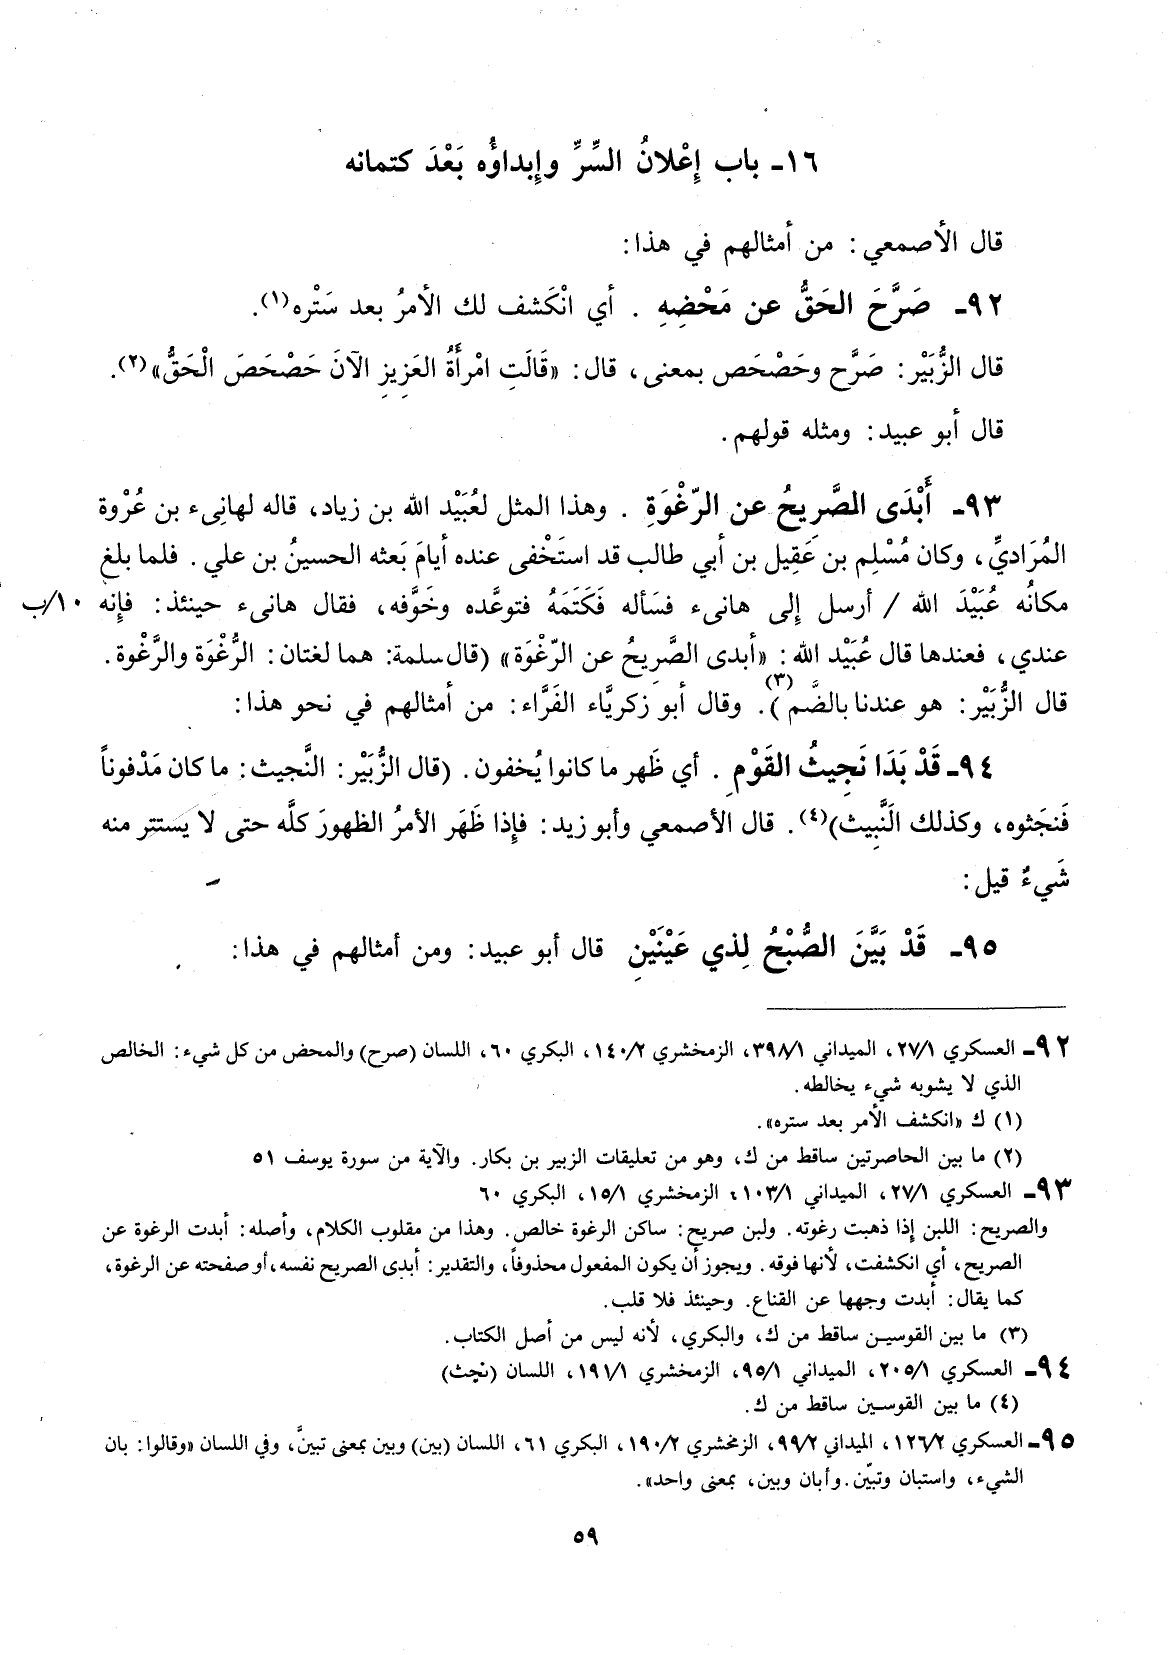 ١٦ـ باب إِعْلانُ السِّرِّ وإِبداؤُه بَعْدَ كتمانه
قال الأصمعي: من أمثالهم في هذا:
٩٢ـ صَرَّحَ الحَقُّ عن مَحْضِهِ . أي انْكَشف لك الأمرُ بعد سَتْره(١).
قال الزُّبَيْر: صَرَّح وحَصْحَص بمعنى، قال: «قَالَتِ امْرأَةُ العَزِيزِ الآنَ حَصْحَصَ الْحَقُّ»(٢).
قال أبو عبيد: ومثله قولهم.
٩٣ـ أَبْدَى الصَّرِيحُ عن الرّغْوَةِ . وهذا المثل لعُبَيْد الله بن زياد، قاله لهانِىء بن عُرْوة
المُرَاديِّ، وكان مُسْلِم بن عَقِيل بن أبي طالب قد استَخْفى عنده أيامَ بَعثه الحسينُ بن علي. فلما بلغ
مكانُه عُبَيْدَ الله / أرسل إلى هانىء فسَأله فَكَتَمَهُ فتوعَّده وخَوَّفه، فقال هانىء حينئذ: فإنه ١٠/ب
عندي، فعندها قال عُبَيْد الله: «أبدى الصَّرِيحُ عن الرّغْوَة» (قال سلمة: هما لغتان: الرُّغْوَة والرَّغْوة.
قال الزُّبَيْر: هو عندنا بالضَّم)(٣). وقال أبو زكريَّاء الفَرَّاء: من أمثالهم في نحو هذا:
٩٤ـ قَدْ بَدَا نَجِيثُ القَوْمِ . أي ظَهر ما كانوا يُخفون. (قال الزُّبَيْر: النَّجيث: ما كان مَدْفوناً
فَنَجَثوه، وكذلك النَّبِيث)(٤). قال الأصمعي وأبو زيد: فإذا ظَهَر الأمرُ الظهورَ كلَّه حتى لا يَستتر منه
شَيءٌ قيل:
٩٥ـ قَدْ بَيَّنَ الصُّبْحُ لِذي عَيْنَيْنِ قال أبو عبيد: ومن أمثالهم في هذا:
٩٢ـ العسكري ٢٧/١، الميداني ٣٩٨/١، الزمخشري ١٤٠/٢، البكري ٦٠، اللسان (صرح) والمحض من كل شيء: الخالص
الذي لا يشوبه شيء يخالطه.
(١) ك «انكشف الأمر بعد ستره».
(٢) ما بين الحاصرتين ساقط من ك، وهو من تعليقات الزبير بن بكار. والآية من سورة يوسف ٥١
٩٣ـ العسكري ٢٧/١، الميداني ١٠٣/١، الزمخشري ١٥/١، البكري ٦٠
والصريح: اللبن إذا ذهبت رغوته. ولبن صريح: ساكن الرغوة خالص. وهذا من مقلوب الكلام، وأصله: أبدت الرغوة عن
الصريح، أي انكشفت، لأنها فوقه. ويجوز أن يكون المفعول محذوفاً، والتقدير: أبدى الصريح نفسه، أو صفحته عن الرغوة،
كما يقال: أبدت وجهها عن القناع. وحينئذ فلا قلب.
(٣) ما بين القوسين ساقط من ك، والبكري، لأنه ليس من أصل الكتاب.
٩٤ـ العسكري ٢٠٥/١، الميداني ٩٥/١، الزمخشري ١٩١/١، اللسان (نجث)
(٤) ما بين القوسين ساقط من ك.
٩٥ـ العسكري ١٢٦/٢، الميداني ٩٩/٢، الزمخشري ١٩٠/٢، البكري ٦١، اللسان (بين) وبين بمعنى تبيَّن، وفي اللسان «وقالوا: بان
الشيء، واستبان وتبيّن. وأبان وبين، بمعنى واحد».
٥٩